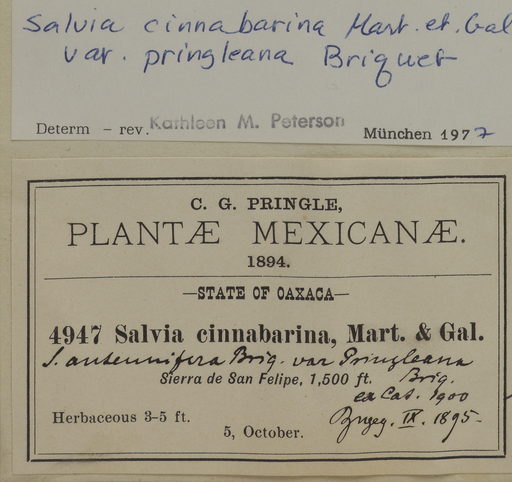 Salvia cinnabarina Mart. et. Gal
var. pringleana Briquet
Determ – rev. Kathleen M. Peterson München 1977
C. G. PRINGLE,
PLANTÆ MEXICANÆ.
1894.
—STATE OF OAXACA—
4947 Salvia cinnabarina, Mart. & Gal.
S. antennifera Briq. var Pringleana
Sierra de San Felipe, 1,500 ft. Briq.
ex Cat. 1900
Herbaceous 3-5 ft. IX. 1895-
5, October.